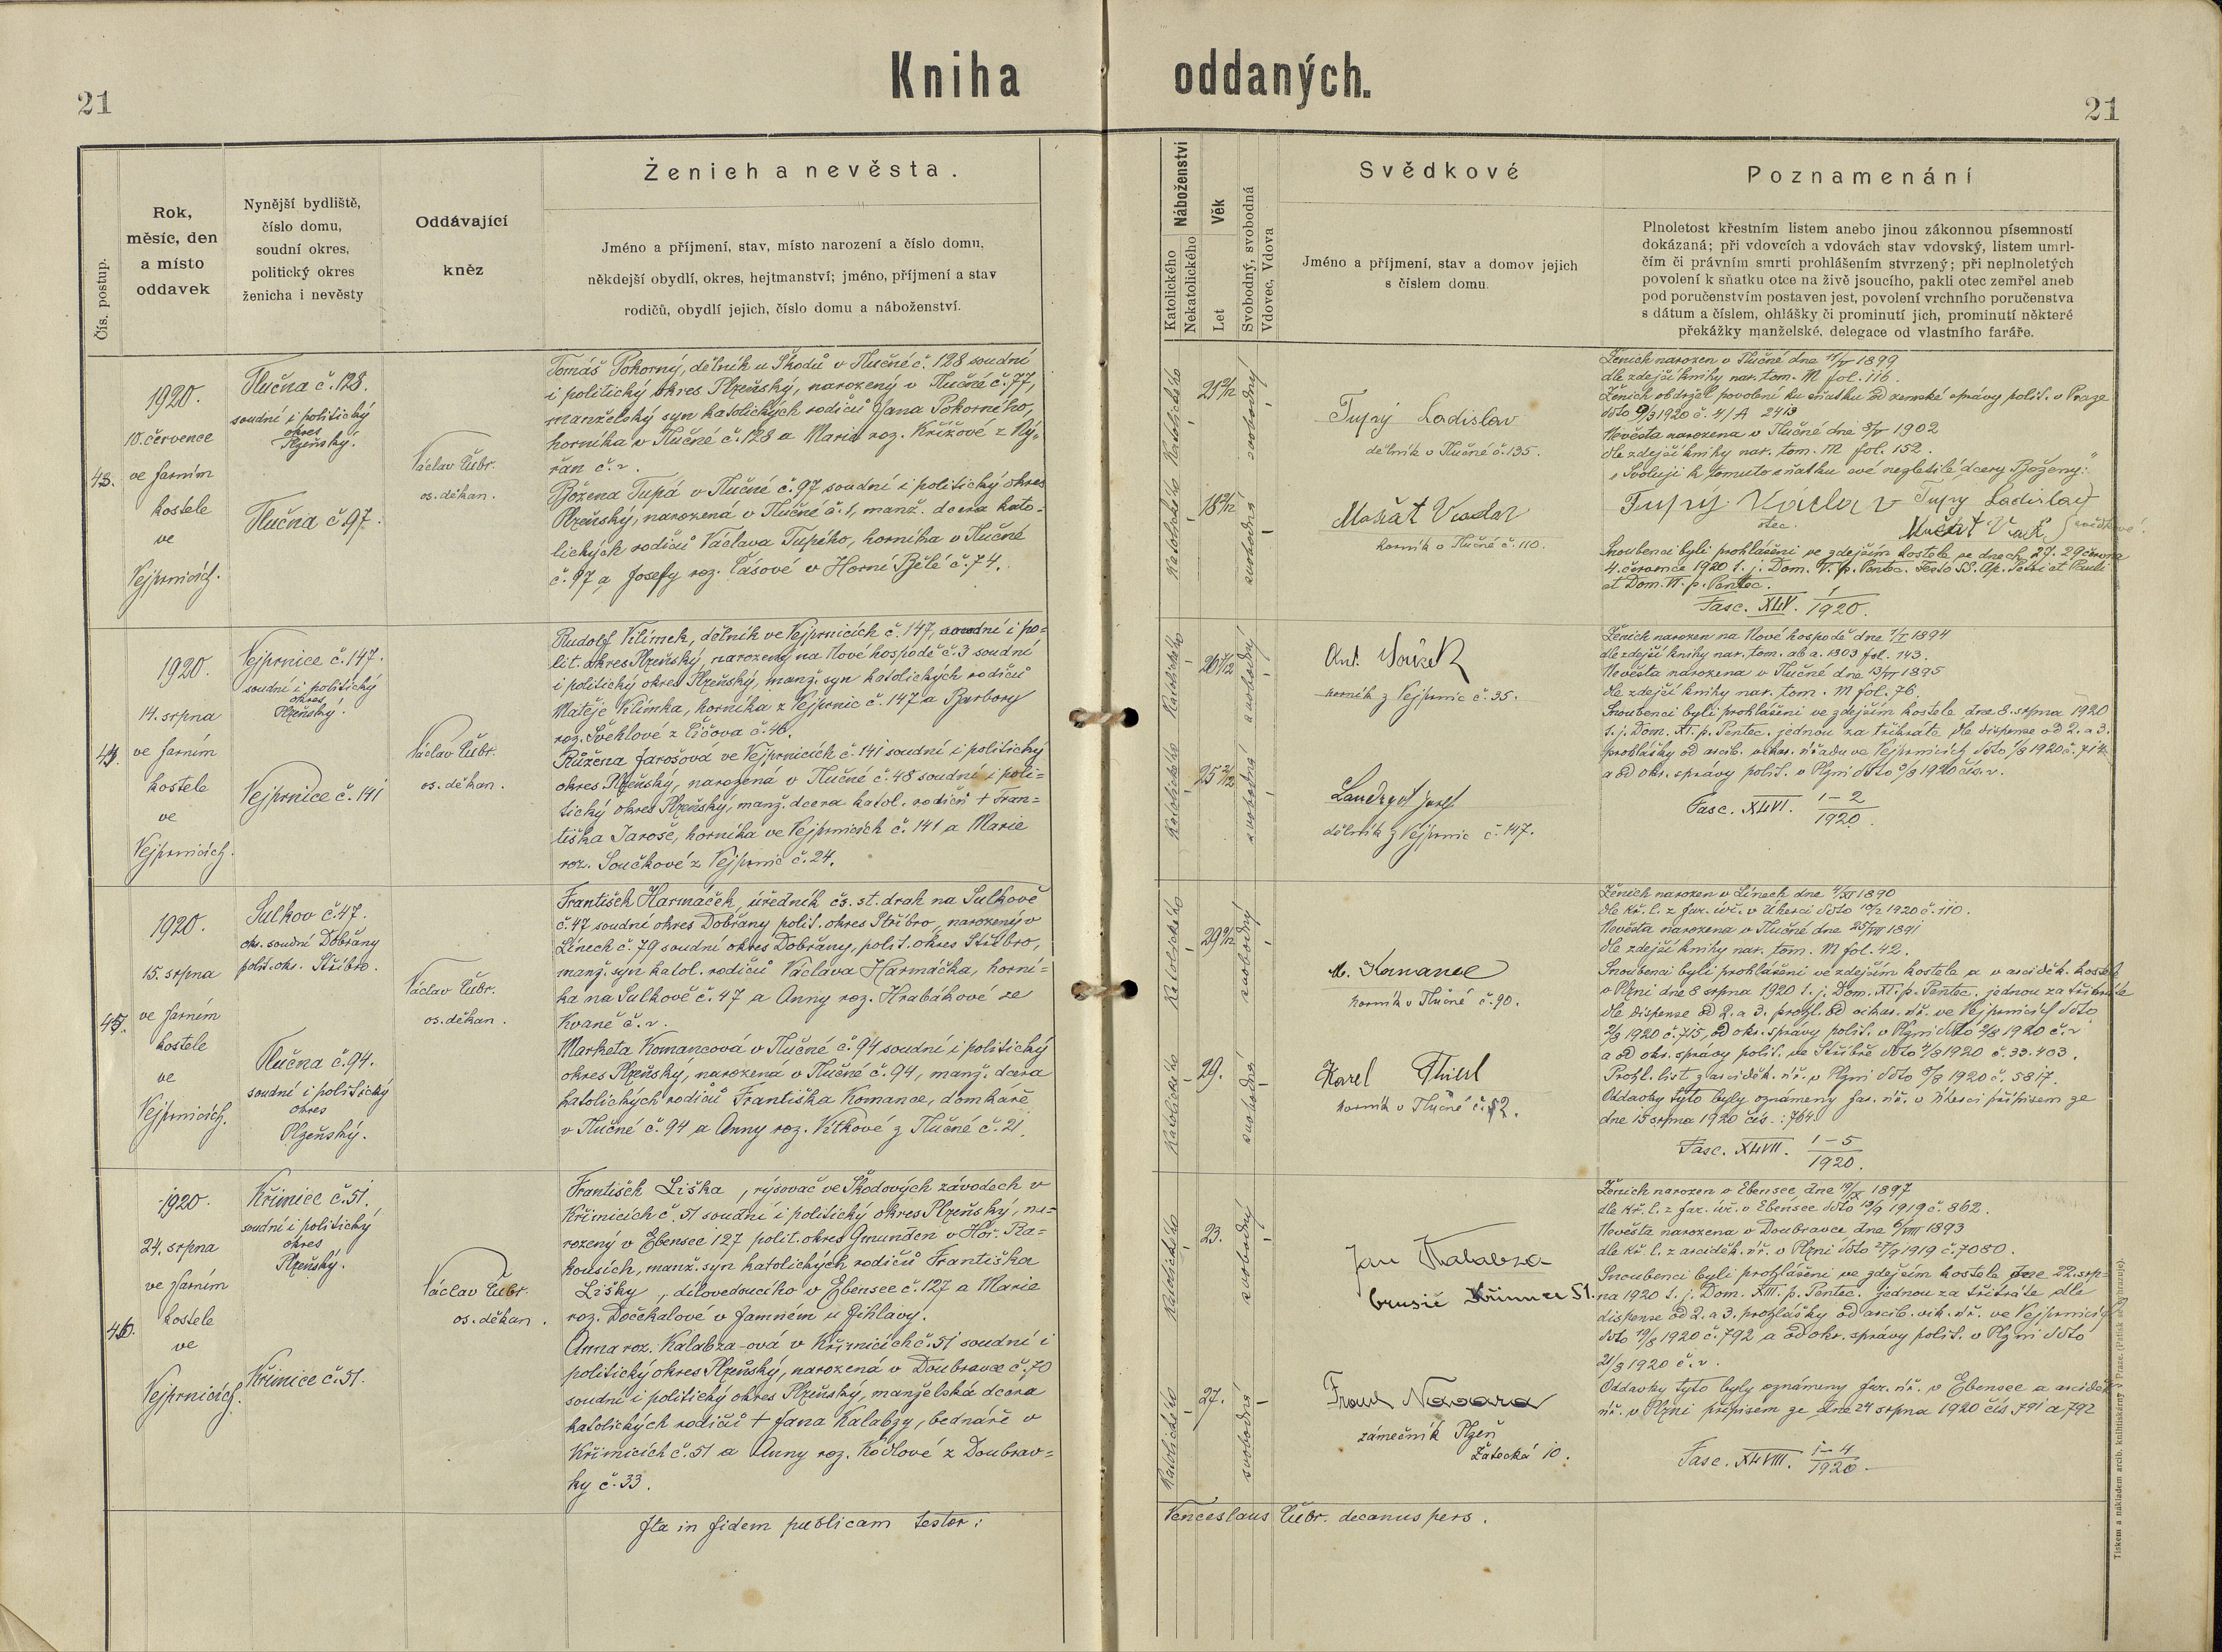 Kniha oddaných.
21
21
Čís. postup.
Rok,
měsíc, den
a místo
oddavek
Nynější bydliště,
číslo domu,
soudní okres,
politický okres
ženicha i nevěsty
Oddávající
kněz
Ženich a nevěsta.
Jméno a příjmení, stav, místo narození a číslo domu,
někdejší obydlí, okres, hejtmanství; jméno, příjmení a stav
rodičů, obydlí jejich, číslo domu a náboženství.
Náboženství
Katolického
Nekatolického
Věk
Let
Svobodný, svobodná
Vdovec, Vdova
Svědkové
Jméno a příjmení, stav a domov jejich
s číslem domu.
Poznamenání
Plnoletost křestním listem anebo jinou zákonnou písemností
dokázaná; při vdovcích a vdovách stav vdovský, listem umrl-
čím či právním smrti prohlášením stvrzený; při neplnoletých
povolení k sňatku otce na živě jsoucího, pakli otec zemřel aneb
pod poručenstvím postaven jest, povolení vrchního poručenstva
s dátum a číslem, ohlášky či prominutí jich, prominutí některé
překážky manželské, delegace od vlastního faráře.
43.
1920.
10. července
ve farním
kostele
ve
Vejprnicích.
Tlučna č. 128.
soudní i politický
okres
Plzeňský.
Tlučna č. 97.
Václav Čubr.
os. děkan.
Tomáš Pokorný, dělník u Škodů v Tlučné č. 128 soudní
i politický okres Plzeňský, narozený v Tlučné č. 77,
manželský syn katolických rodičů Jana Pokorného,
horníka v Tlučné č. 128 a Marie roz. Křížové z Ný-
řan č. v.
Božena Tupá v Tlučné č. 97 soudní i politický okres
Plzeňský, narozená v Tlučné č. 1, manž. dcera kato-
lických rodičů Václava Tupého, horníka v Tlučné
č. 97 a Josefy roz. Časové v Horní Bělé č. 74.
Katolického
svobodný
Katolického
svobodná
Tupý Ladislav
dělník v Tlučné č. 135.
Mašát Václav
horník v Tlučné č. 110.
Ženich narozen v Tlučné dne 1899
dle zdejší knihy nar. tom. M fol. 116.
Ženich obdržel povolení ku sňatku od zemské správy polit. v Praze
ddto 9/3 1920 č. 4/A 2413
Nevěsta narozena v Tlučné dne 1902
dle zdejší knihy nar. tom. M fol. 152.
"Svoluji k tomuto sňatku své nezletilé dcery Boženy:"
Tupý Václav Tupý Ladislav
otec. Mašát svědkové.
Snoubenci byli prohlášeni ve zdejším kostele ve dnech 27. 29 června
4. července 1920 t. j. Dom. V. p. Pentec. Festo SS. Ap. Petri et Pauli
et Dom. VI. p. Pentec.
Fasc. XLV. 1/1920.
44.
1920.
14. srpna
ve farním
kostele
ve
Vejprnicích.
Vejprnice č. 147.
soudní i politický
okres
Plzeňský.
Vejprnice č. 141
Václav Čubr.
os. děkan.
Rudolf Klimek, dělník ve Vejprnicích č. 147, soudní i po-
lit. okres Plzeňský, narozený na Nové hospodě č. 3 soudní
i politický okres Plzeňský, manž. syn katolických rodičů
Matěje Klimka, horníka z Vejprnic č. 147 a Barbory
roz. Švehlové z Čičova č. 46.
Růžena Jarošová ve Vejprnicích č. 141 soudní i politický
okres Plzeňský, narozená v Tlučné č. 48 soudní i poli-
tický okres Plzeňský, manž. dcera katol. rodičů + Fran-
tiška Jaroše, horníka ve Vejprnicích č. 141 a Marie
roz. Součkové z Vejprnic č. 24.
Katolického
svobodný
Katolického
svobodná
Ant. Souček
horník z Vejprnic č. 35.
Josef
dělník z Vejprnic č. 147.
Ženich narozen na Nové hospodě dne 1894
dle zdejší knihy nar. tom. ab a. 1803 fol. 143.
Nevěsta narozena v Tlučné dne 1895
dle zdejší knihy nar. tom. M fol. 76.
Snoubenci byli prohlášeni ve zdejším kostele dne 8. srpna 1920
t. j. Dom. XI. p. Pentec. jednou za třikráte dle dispense od 2. a 3.
prohlášky od arcib. vikar. úřadu ve Vejprnicích ddto 1920 č. 714
a od okr. správy polit. v Plzni ddto 1920 čís. v.
Fasc. XLVI. 1-2/1920.
45.
1920.
15. srpna
ve farním
kostele
ve
Vejprnicích.
Sulkov č. 47.
okr. soudní Dobřany
polit. okr. Stříbro.
Tlučna č. 94.
soudní i politický
okres
Plzeňský.
Václav Čubr.
os. děkan.
František Harmáček, úředník čs. st. drah na Sulkově
č. 47 soudní okres Dobřany polit. okres Stříbro, narozený v
Línech č. 79 soudní okres Dobřany, polit. okres Stříbro,
manž. syn katol. rodičů Václava Harmáčka, horní-
ka na Sulkově č. 47 a Anny roz. Hrabákové ze
Kvaně č. v.
Marketa Komancová v Tlučné č. 94 soudní i politický
okres Plzeňský, narozená v Tlučné č. 94, manž. dcera
katolických rodičů Františka Komanec, domkáře
v Tlučné č. 94 a Anny roz. Vítkové z Tlučné č. 21.
Katolického
svobodný
Katolického
29.
svobodná
M. Komanec
horník v Tlučné č. 90.
Karel Thierl
horník v Tlučné č. 52.
Ženich narozen v Línech dne 1890
dle kř. l. z far. úř. v Úherci ddto 1920 č. 110.
Nevěsta narozena v Tlučné dne 25/VII 1891
dle zdejší knihy nar. tom. M fol. 42.
Snoubenci byli prohlášeni ve zdejším kostele a v arciděk. kostele
v Plzni dne 8 srpna 1920 t. j. Dom. XI. p. Pentec. jednou za třikráte
dle dispense od 2. a 3. prohl. od vikar. úř. ve Vejprnicích ddto
2/8 1920 č. 715, od okr. správy polit. v Plzni ddto 2/8 1920 č. v
a od okr. správy polit. ve Stříbře ddto 4/8 1920 č. 33.403.
Prohl. list z arciděk. úř. v Plzni ddto 1920 č. 5817.
Oddavky tyto byly oznámeny far. úř. v Úherci přípisem ze
dne 15 srpna 1920 čís.: 764.
Fasc. XLVII. 1-5/1920.
46.
1920.
24. srpna
ve farním
kostele
ve
Vejprnicích.
Křimice č. 51.
soudní i politický
okres
Plzeňský.
Křimice č. 51.
Václav Čubr.
os. děkan.
František Liška, rýsovač ve Škodových závodech v
Křimicích č. 51 soudní i politický okres Plzeňský, na-
rozený v Ebensee 127 polit. okres Gmunden v Hoř. Ra-
kousích, manž. syn katolických rodičů Františka
Lišky, dílovedoucího v Ebensee č. 127 a Marie
roz. Dočekalové v Jamném u Jihlavy.
Anna roz. Kalabza-ová v Křimicích č. 51 soudní i
politický okres Plzeňský, narozená v Doubravce č. 70
soudní i politický okres Plzeňský, manželská dcera
katolických rodičů + Jana Kalabzy, bednáře v
Křimicích č. 51 a Anny roz. Ködlové z Doubrav-
ky č. 33.
Katolického
23.
svobodný
Katolického
27.
svobodná
Jan Kalabza
brusič Křimice 51.
Navara
zámečník Plzeň
Žatecká 10.
Ženich narozen v Ebensee dne 1897
dle kř. l. z far. úř. v Ebensee ddto 1919 č. 862.
Nevěsta narozena v Doubravce dne 6/VIII 1893
dle kř. l. z arciděk. úř. v Plzni ddto 1919 č. 7080.
Snoubenci byli prohlášeni ve zdejším kostele dne 22. srp-
na 1920 t. j. Dom. XIII. p. Pentec. jednou za třikráte dle
dispense od 2. a 3. prohlášky od arcib. vik. úř. ve Vejprnicích
ddto 19/8 1920 č. 792 a od okr. správy polit. v Plzni ddto
21/8 1920 č. v.
Oddavky tyto byly oznámeny far. úř. v Ebensee a arciděk.
úř. v Plzni přípisem ze dne 24 srpna 1920 čís 791 a 792
Fasc. XLVIII. 1-4/1920.
Ita in fidem publicam testor: Venceslaus Čubr. decanus pers.
Tiskem a nákladem arcib. knihtiskárny v Praze. (Patisk se vyhrazuje).